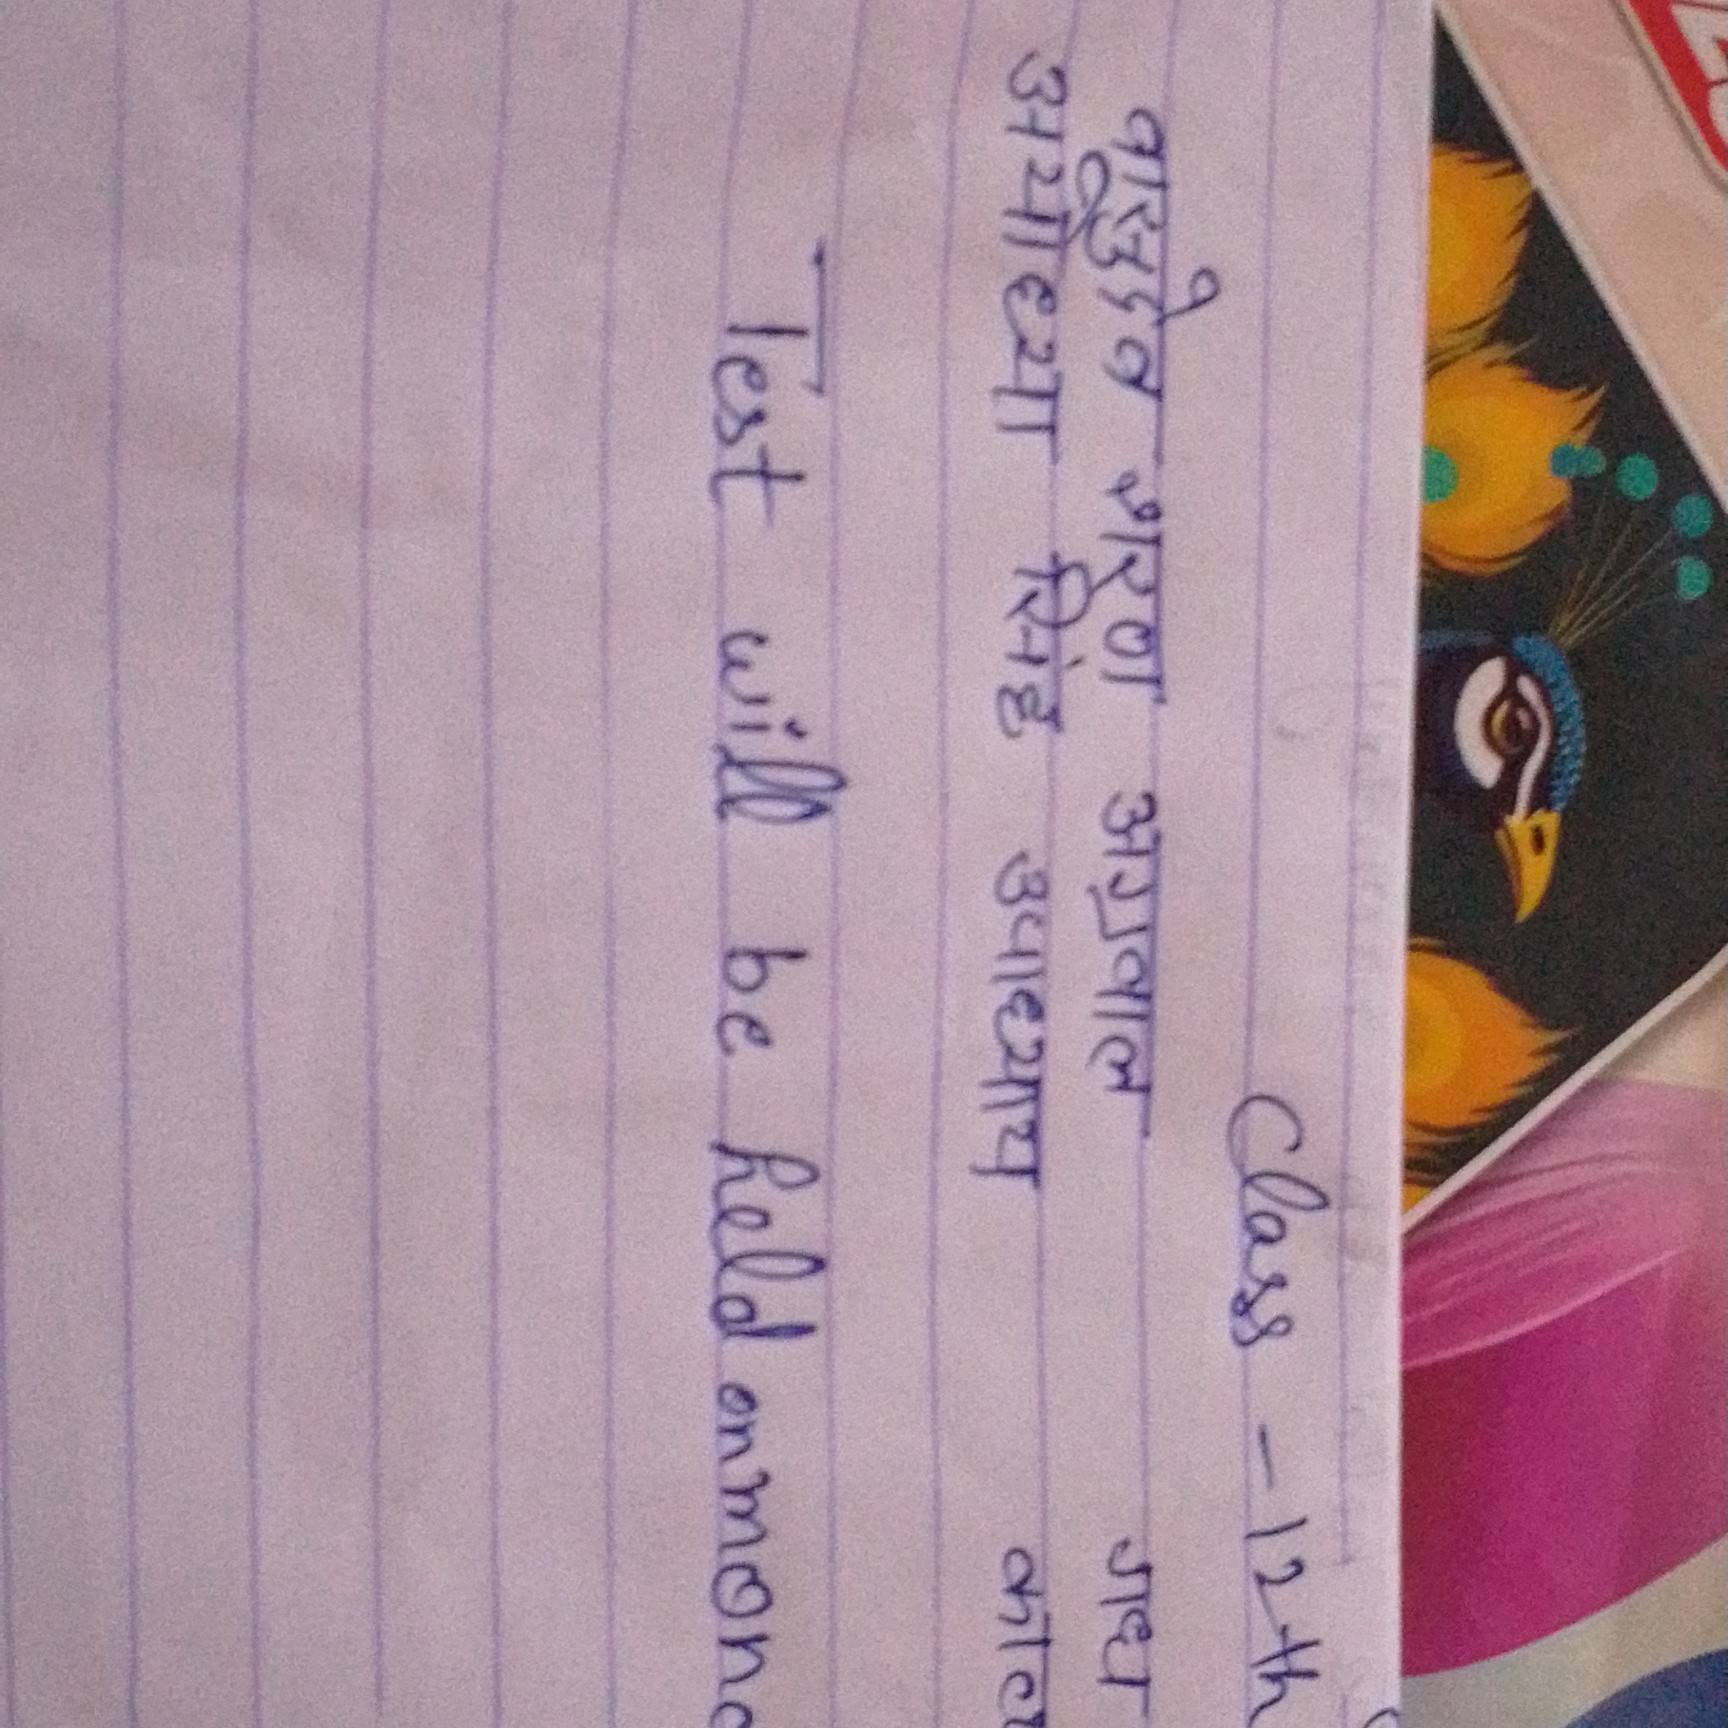 Class - 12th
वासुदेव शरण अग्रवाल गद्य
अयोध्या सिंह उपाध्याय
Test will be held on